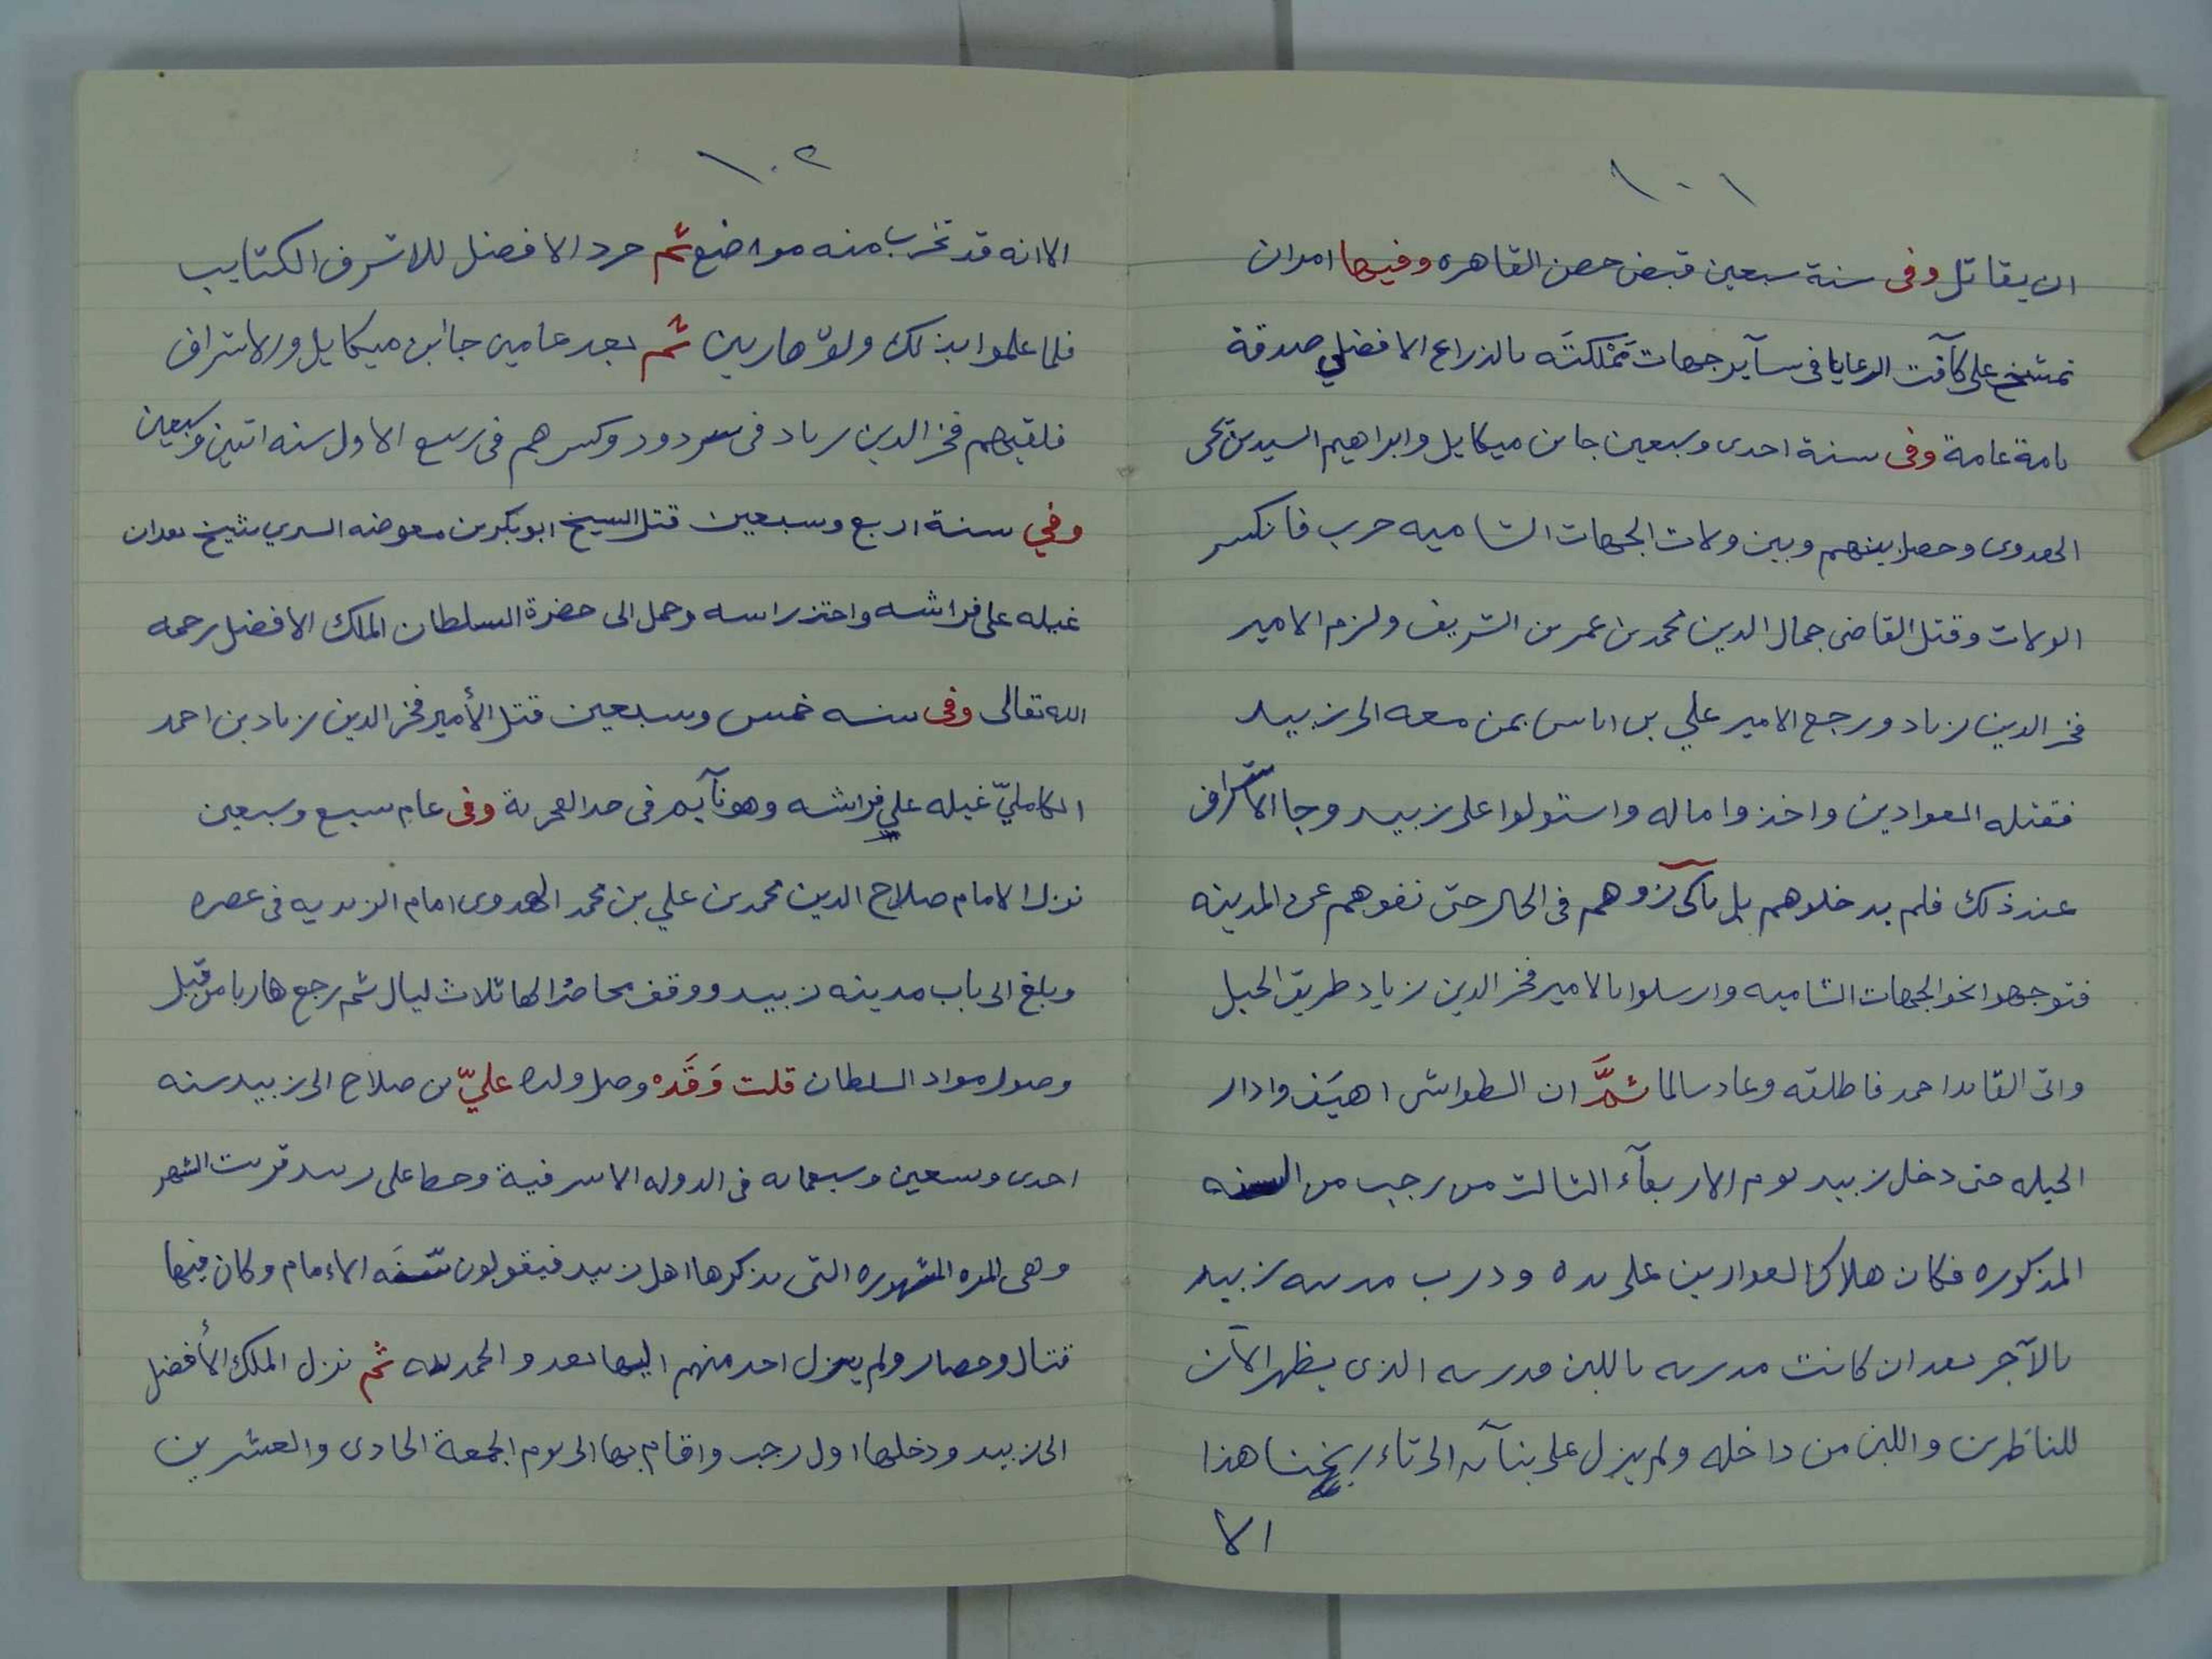 ١٠١
ان يقاتل وفى سنة سبعين قبض حصن القاهره وفيها امر ان
تمشخ على كآفت الرعايا فى سآير جهات مَمْلكتَه بالذراع الافضلي صدقة
بامة عامة وفى سنة احدى وسبعين جا بن ميكايل وابراهيم السيد بن يحى
الهدوى وحصل بينهم وبين ولات الجهات الشاميه حرب فانكسر
الولات وقتل القاضى جمال الدين محمد بن عمر بن الشريف ولزم الامير
فخر الدين زياد ورجع الامير علي بن اياس بمن معه الى زبيد
فقتله العوادين واخذوا ماله واستولوا على زبيد وجا الاشراف
عند ذلك فلم يدخلوهم بل ناكروهم فى الحال حتى نفوهم عن المدينه
فتوجهوا نحو الجهات الشاميه وارسلوا بالامير فخر الدين زياد طريق الجبل
واتى القايد احمد فاطلقه وعاد سالما ثمَّ ان الطواشى اهيَف وادار
الحيله حتى دخل زبيد يوم الاربعآء الثالث من رجب من السنه
المذكوره فكان هلاك العوارين على يده ودرب مدينه زبيد
بالآجر بعد ان كانت مدربه باللبن فدربه الذى يظهر الآن
للناظرين واللبن من داخله ولم يزل على بنآيه الى تاءريخنا هذا
الا
١٠٢
الا انه قد تخرب منه مواضع ثم جرد الافضل للاشرف الكتايب
فلما علموا بذلك ولوّ هاربين ثم بعد عامين جا ابن ميكايل والاشراف
فلقيهم فخر الدين زياد فى سردود وكسرهم فى ربيع الاول سنه اثنين وسبعين
وفي سنة اربع وسبعين قتل الشيخ ابو بكر بن معوضه السيري شيخ بعدان
غيله على فراشه واحتز راسه وحمل الى حضرة السلطان الملك الافضل رحمه
الله تعالى وفى سنه خمس وسبعين قتل الأمير فخر الدين زياد بن احمد
الكامليّ غيله علي فراشه وهو نآيم فى حد القحرية وفى عام سبع وسبعين
نزل الامام صلاح الدين محمد بن علي بن محمد الهدوى امام الزيديه فى عصره
وبلغ الى باب مدينه زبيد ووقف محاصرًا لها ثلاث ليال ثم رجع هاربا من قبل
وصول مواد السلطان قلت وَقَده وصل ولده عليّ بن صلاح الى زبيد سنه
احدى وتسعين وسبعمايه فى الدوله الاشرفية وحط على زبيد قريت الشهر
وهى المره المشهوره التى يذكرها اهل زبيد فيقولون سنَه الاءمام وكان فيها
قتال وحصار ولم ينزل احد منهم اليها بعد والحمد لله ثم نزل الملك الأفضل
الى زبيد ودخلها اول رجب واقام بها الى يوم الجمعة الحادى والعشرين